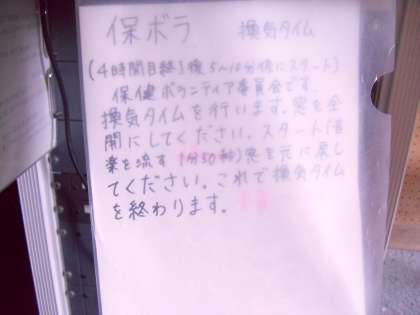 保ボラ 換気タイム
(4時間目終了後5分後にスタート)
保健ボランティア委員会です。
換気タイムを行います。窓を全
開にしてください。スタート(音
楽を流す 1分50秒)窓を元に戻し
てください。これで換気タイム
を終わります。